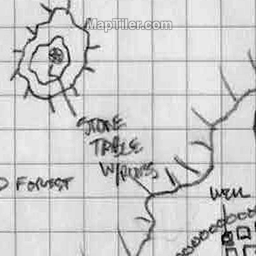 MapTiler.com
STONE
TABLE
W/RUNES
FOREST
WELL